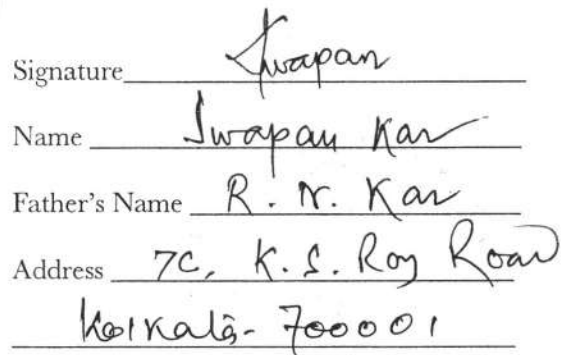 Signature Swapan
Name Swapan Kar
Father's Name R. N. Kar
Address 7C, K. S. Roy Road
Kolkata- 700001